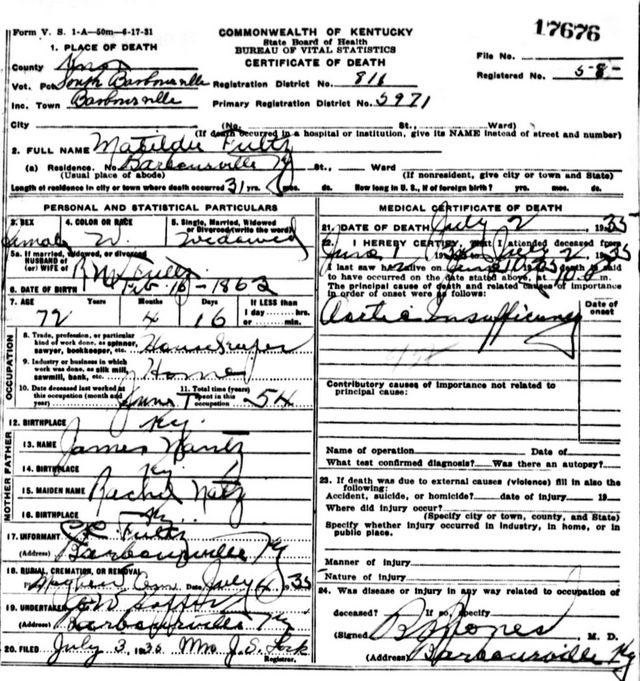 Form V. S. 1-A—50m—6-17-31
COMMONWEALTH OF KENTUCKY
State Board of Health
BUREAU OF VITAL STATISTICS
CERTIFICATE OF DEATH
17676
1. PLACE OF DEATH
County Knox
Vot. Pct. South Barbourville
Inc. Town Barbourville
Registration District No. 816
Primary Registration District No. 5971
File No.
Registered No. 58-
City (No. St., Ward)
(If death occurred in a hospital or institution, give its NAME instead of street and number)
2. FULL NAME Matildie Fultz
(a) Residence. No. Barbourville Ky St., Ward
(Usual place of abode) (If nonresident, give city or town and State)
Length of residence in city or town where death occurred 31 yrs. mos. ds. How long in U. S., if of foreign birth? yrs. mos. ds.
PERSONAL AND STATISTICAL PARTICULARS
3. SEX 4. COLOR OR RACE 5. Single, Married, Widowed or Divorced (write the word)
Female W. Widowed
5a. If married, widowed, or divorced
HUSBAND of
(or) WIFE of Fultz
6. DATE OF BIRTH Feb-16-1863
7. AGE Years Months Days If LESS than 1 day hrs. or min.
72 4 16
OCCUPATION
8. Trade, profession, or particular kind of work done, as spinner, sawyer, bookkeeper, etc. Housekeeper
9. Industry or business in which work was done, as silk mill, sawmill, bank, etc. Home
10. Date deceased last worked at this occupation (month and year) June
11. Total time (years) spent in this occupation 54
12. BIRTHPLACE Ky.
FATHER
13. NAME James
14. BIRTHPLACE Ky.
MOTHER
15. MAIDEN NAME Rachel
16. BIRTHPLACE Ky.
17. INFORMANT Fultz
(Address) Barbourville Ky
18. BURIAL, CREMATION, OR REMOVAL
Cem Date July 4 1935
19. UNDERTAKER
(Address) Barbourville Ky
20. FILED July 3, 1935 Mrs J. S. Lock
Registrar.
MEDICAL CERTIFICATE OF DEATH
21. DATE OF DEATH July 2, 1935
22. I HEREBY CERTIFY, That I attended deceased from
June 1 1935 to July 2 1935
I last saw h alive on June 1935 death is said
to have occurred on the date stated above, at m.
The principal cause of death and related causes of importance in order of onset were as follows:
Date of onset
Aortic Insufficiency
Contributory causes of importance not related to principal cause:
Name of operation Date of
What test confirmed diagnosis? Was there an autopsy?
23. If death was due to external causes (violence) fill in also the following:
Accident, suicide, or homicide? date of injury 19
Where did injury occur?
(Specify city or town, county, and State)
Specify whether injury occurred in industry, in home, or in public place.
Manner of injury
Nature of injury
24. Was disease or injury in any way related to occupation of
deceased? If so, specify
(Signed) Jones M. D.
(Address) Barbourville Ky